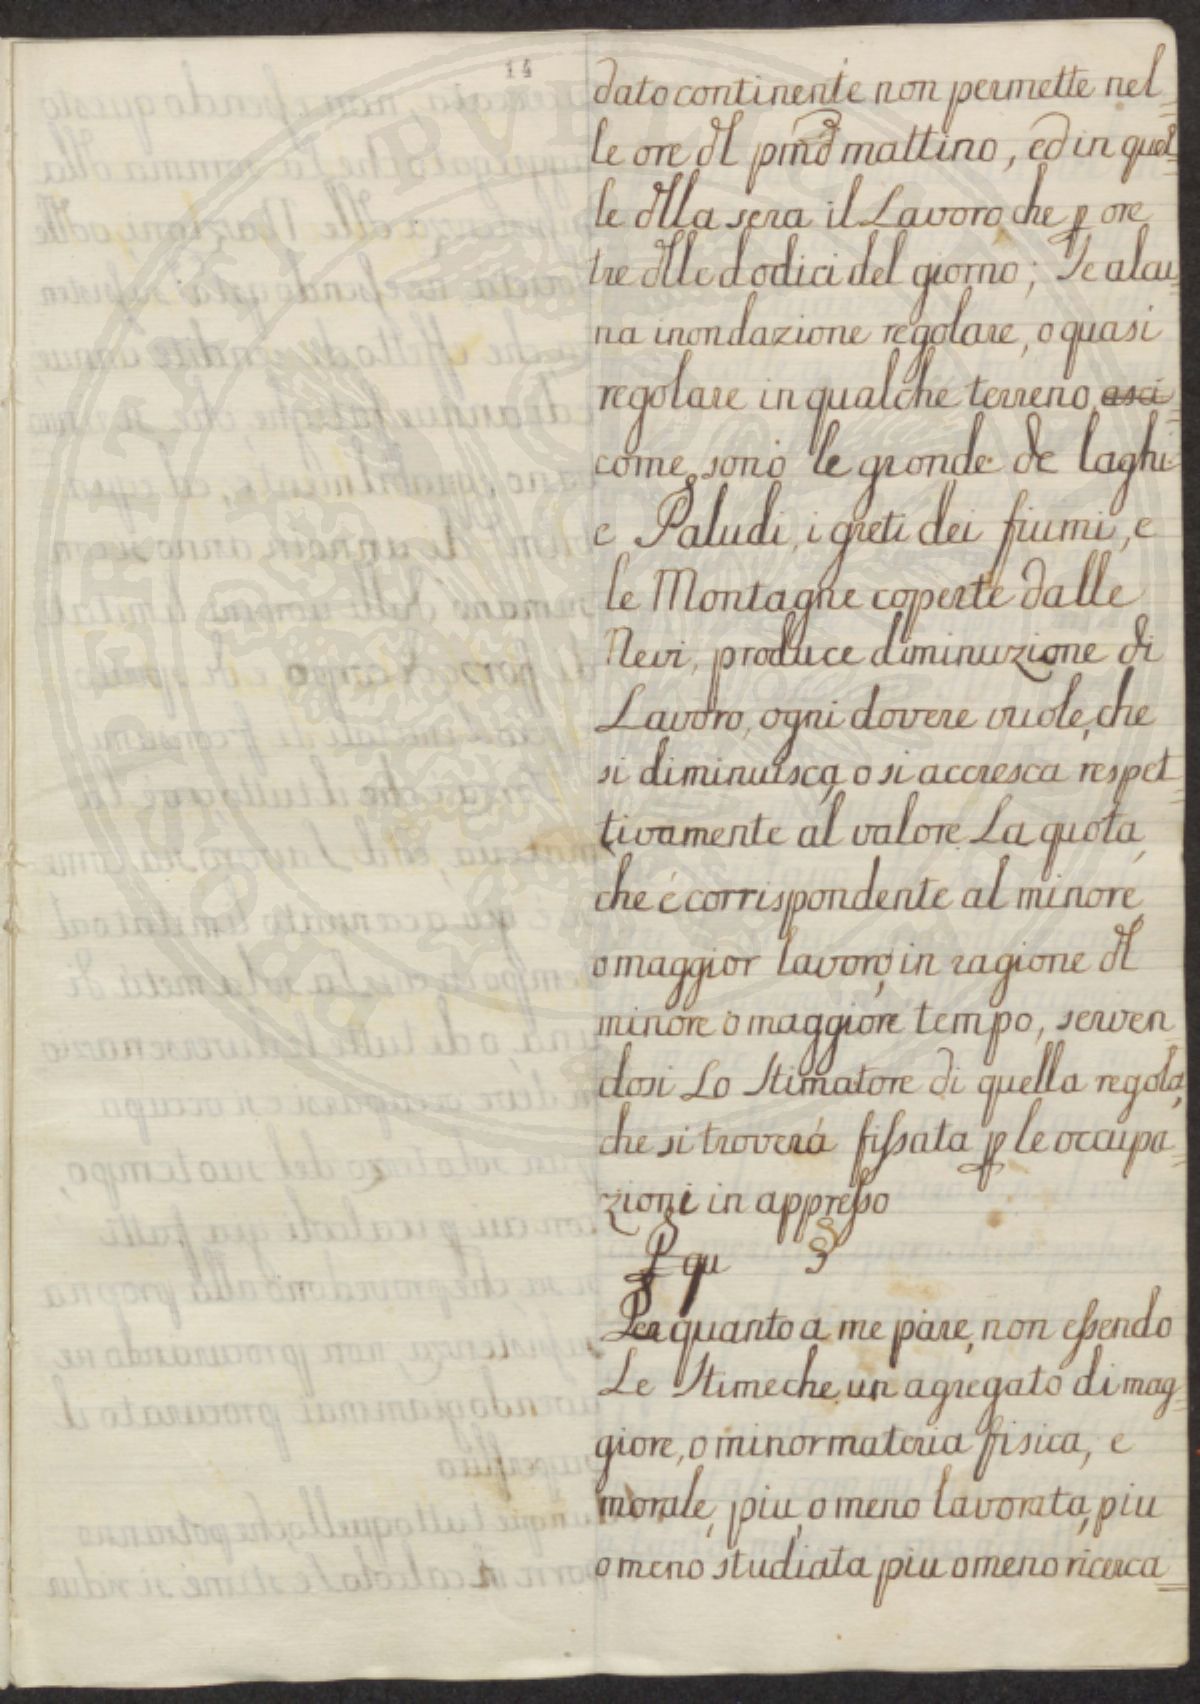 14
dato continente non permette nel=
le ore dl pmõ mattino, ed in quel=
le dlla sera il Lavoro che ꝑ ore
tre dlle dodici del giorno; Se alcu=
na inondazione regolare, o quasi
regolare in qualche terreno, asci=
come sono le gronde de laghi
e Paludi, i greti dei fiumi, e
le Montagne coperte dalle
Nevi, produce diminuzione di
Lavoro, ogni dovere vuole, che
si diminuisca, o si accresca respet=
tivamente al valore La quota,
che é corrispondente al minore,
o maggior lavoro, in ragione dl
minore o maggiore tempo, serven
dosi Lo Stimatore di quella regola,
che si troverá fissata ꝑ le occupa=
zioni in appresso
§ 9u
Per quanto a me pare, non essendo
Le Stime che un agregato di mag=
giore, o minor materia fisica, e
morale, piu, o meno lavorata, piu
o meno studiata piu o meno ricerca=